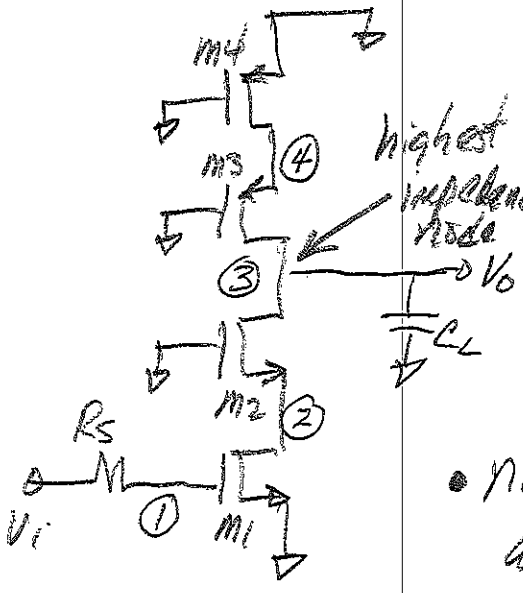 M4
M3
④
highest
impedence
node
③
Vo
CL
M2
②
Rs
①
Vi
M1